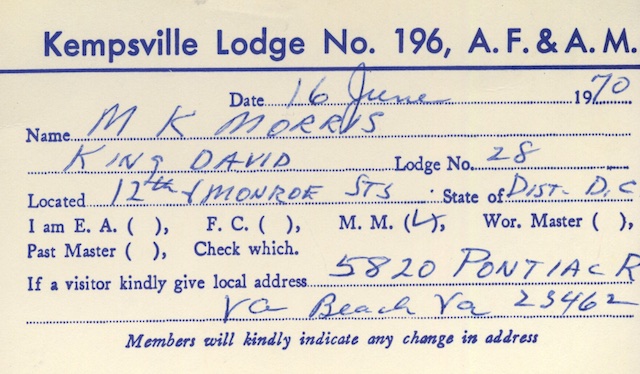 Kempsville Lodge No. 196, A. F. & A. M.
Date 16 June 1970
Name M K MORRIS
KING DAVID Lodge No. 28
Located 12th & MONROE STS State of DIST. D.C
I am E. A. ( ), F. C. ( ), M. M. (✓), Wor. Master ( ),
Past Master ( ), Check which.
If a visitor kindly give local address 5820 PONTIAC R
Va Beach Va 23462
Members will kindly indicate any change in address